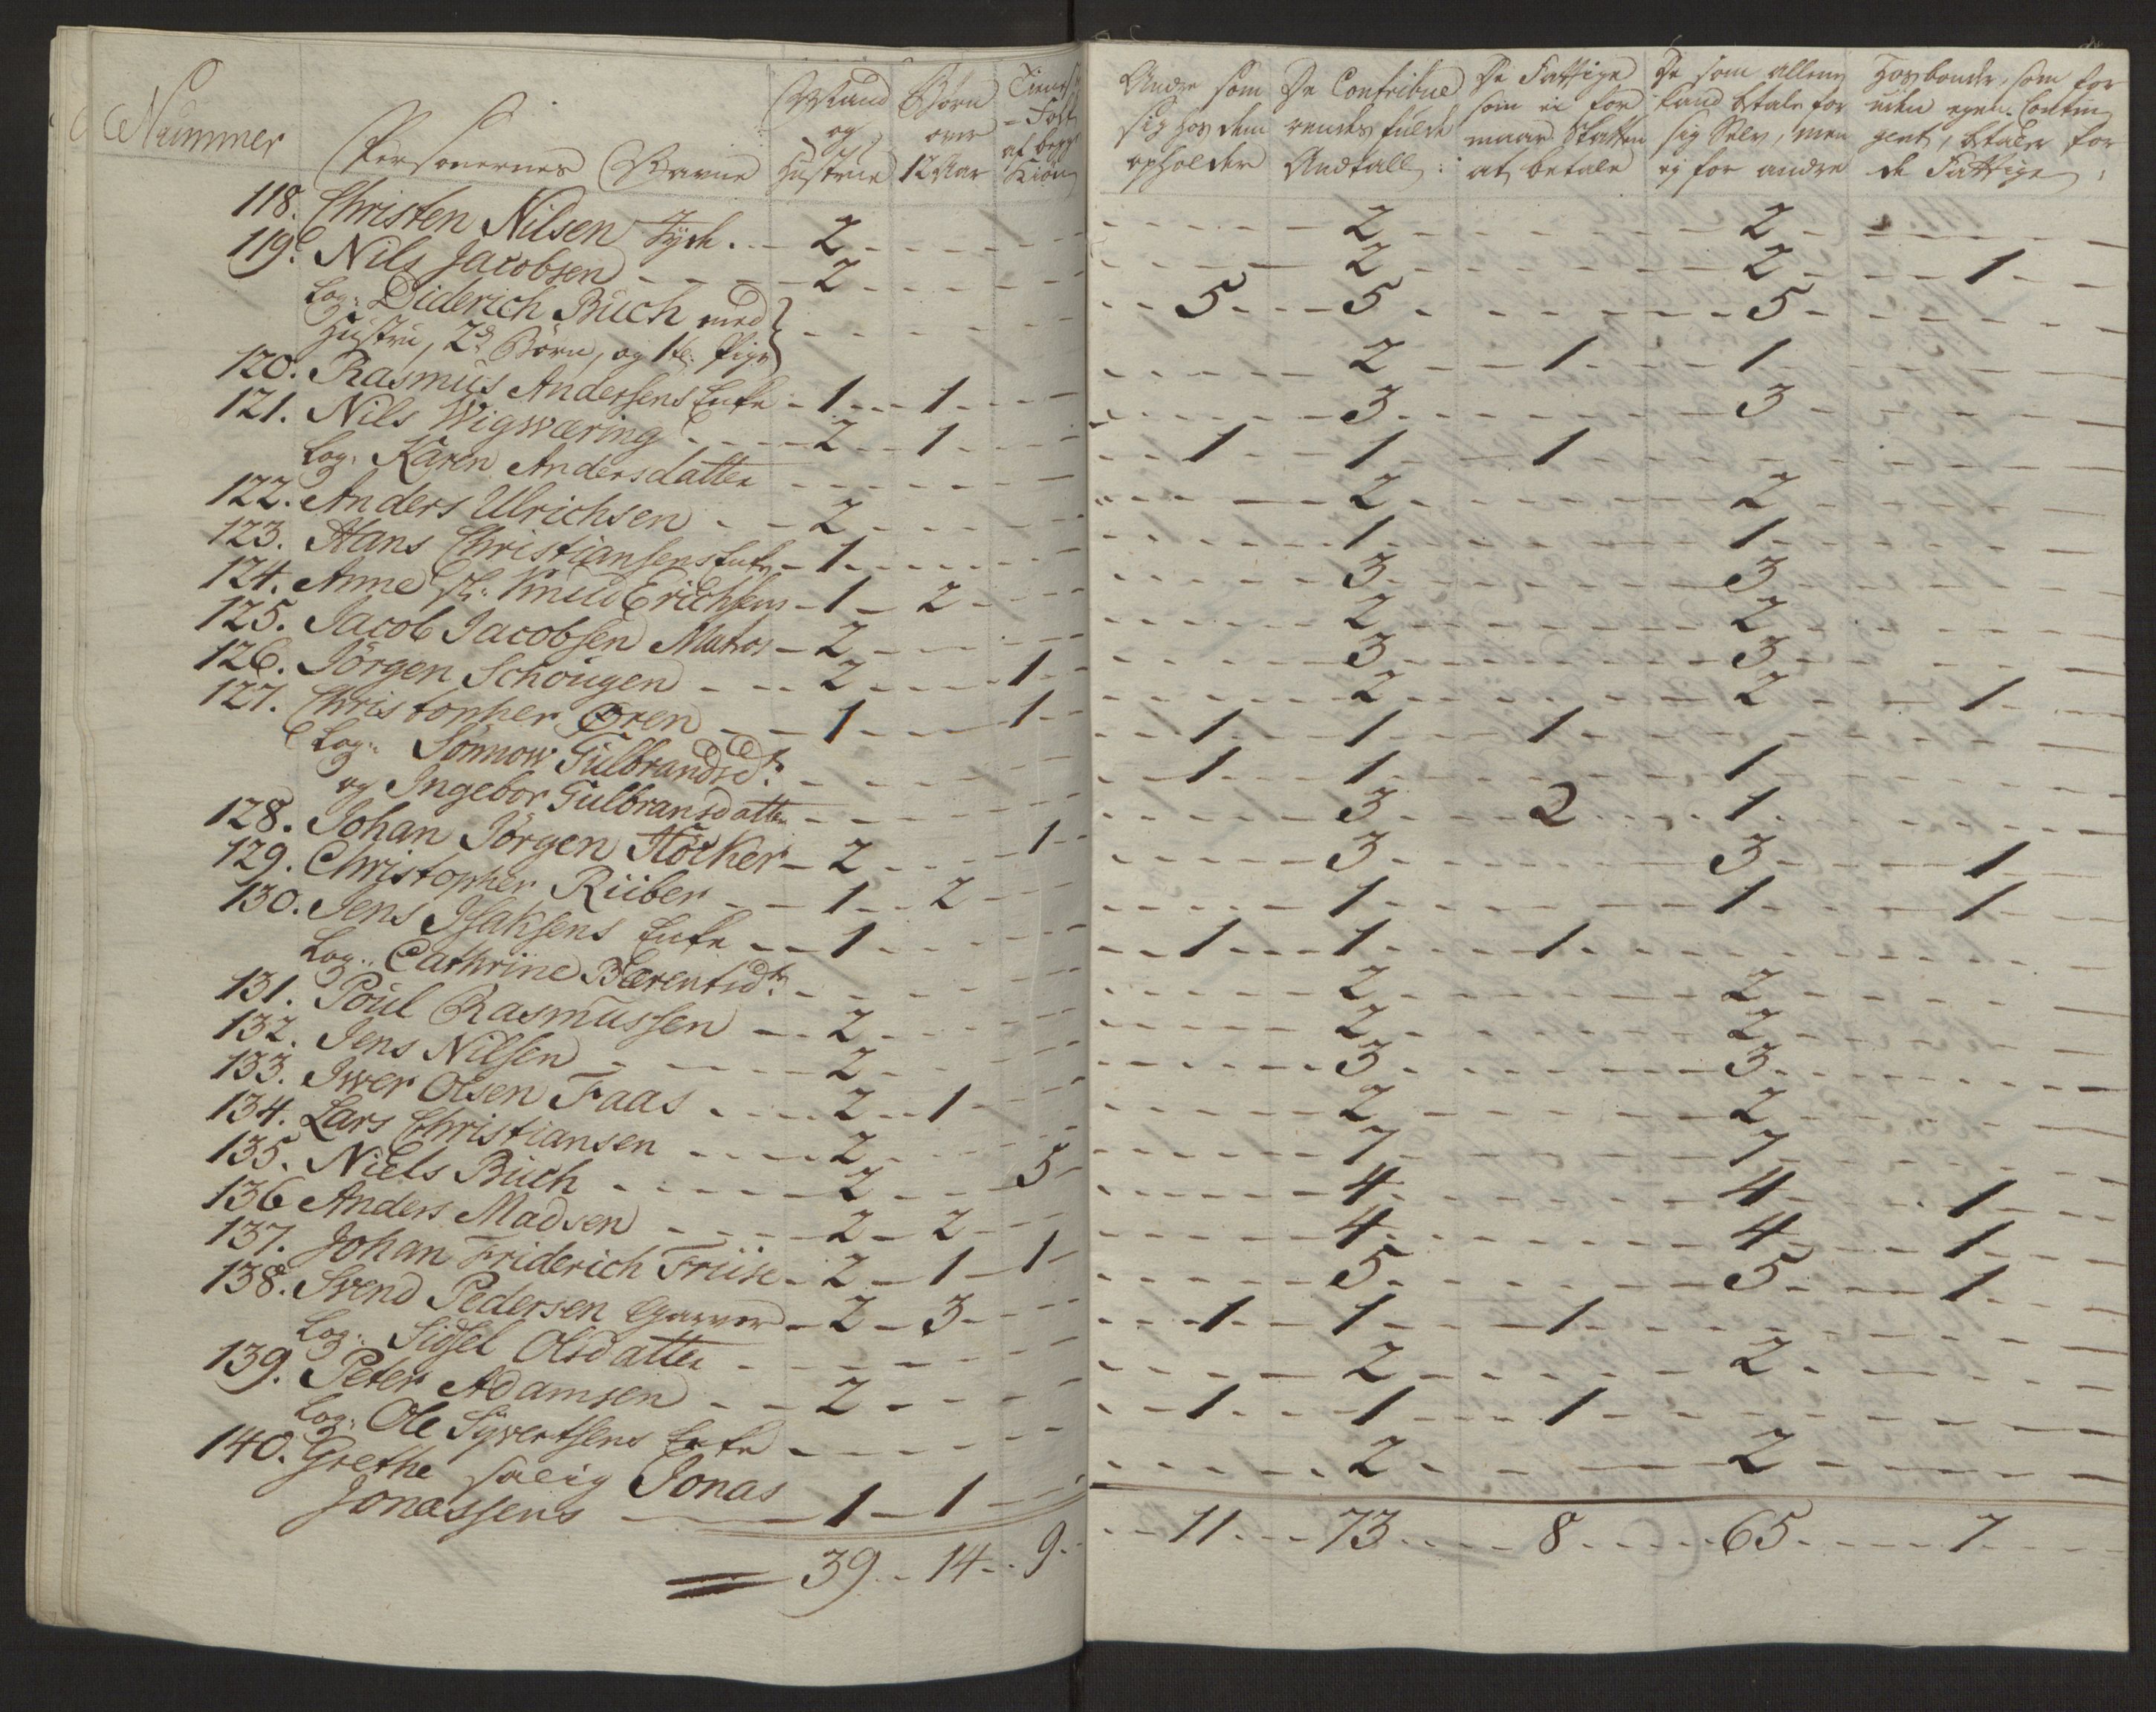 Nummer
Personernes Navne
Mand
og
Hustrue
Børn
over
12 Aar
Tieneste
-Folk
af begge
Kiøn
118. Christen Nilsen Tysk. - 2
119. Nils Jacobsen - 2
Log: Diderich Buch med
Hustru, 2de Børn, og 1 t. Pige
120. Rasmus Andersens Enke - 1 - 1
121. Nils Wigwæring - 2 - 1
Log: Karen Andersdatter
122. Anders Ulrichsen - 2
123. Hans Christiansens Enke - 1
124. Anne Sl. Knud Erichsens - 1 - 2
125. Jacob Jacobsen Matros - 2
126. Jörgen Schougen - 2 - 1
127. Christopher Oren - 1 - 1
Log: Sönnow Gulbrandsdr.
og Ingebor Gulbransdatter
128. Johan Jörgen Höcker - 2 - 1
129. Christopher Rüber - 1 - 2
130. Jens Isaksens Enke - 1
Log: Cathrine Bærentsdr.
131. Poul Rasmussen - 2
132. Jens Nilsen - 2
133. Iver Olsen Faas - 2 - 1
134. Lars Christiansen - 2
135. Niels Buch - 2 - 5
136 Anders Madsen - 2 - 2
137. Johan Friderich Friise - 2 - 1 - 1
138. Svend Pedersen Garver - 2 - 3
Log: Sidsel Olsdatter
139. Peter Adamsen - 2
Log: Ole Syvertsens Enke
140. Grethe salig Jonas
Jonassens - 1 - 1
39 - 14 - 9
Andre som
sig hos dem
opholder
De Contribue
rendes fulde
Andtall
De Fattige
som ei for
maar Skatten
at betale
De som allene
kand betale for
sig Selv, men
ej for andre
Hosbonder, som for
uden egen Contin
gent, betaler for
de Fattige
2 - 2
2 - 2 - 1
5 - 5 - 5
2 - 1 - 1
3 - 3
1 - 1 - 1
2 - 2
1 - 1
3 - 3
2 - 2
3 - 3
2 - 2 - 1
1 - 1 - 1
1 - 1 - 1
3 - 2 - 1
3 - 3 - 1
1 - 1 - 1
1 - 1 - 1
2 - 2
2 - 2
3 - 3
2 - 2
7 - 7
4 - 4 - 1
4 - 4 - 1
5 - 5 - 1
1 - 1 - 1
2 - 2
1 - 1 - 1
2 - 2
11 - 73 - 8 - 65 - 7